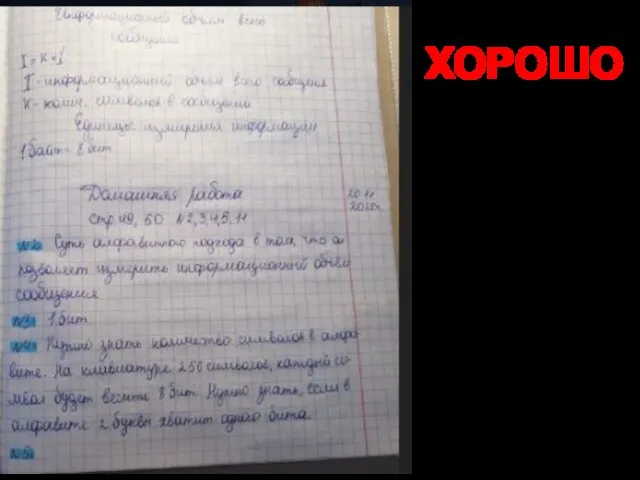 Информационный объём всего
сообщения
I = K * i
I - информационный объём всего сообщения
K - колич. символов в сообщении
Единицы измерения информации
1 байт = 8 бит
Домашняя работа
20.11
2020г
стр 49, 50 №2,3,4,5,11
№2 Суть алфавитного подхода в том, что он
позволяет измерить информационный объём
сообщения
№3 1 бит
№4 Нужно знать количество символов в алфа-
вите. На клавиатуре 256 символов, каждый си-
мвол будет весить 8 бит. Нужно знать, если в
алфавите 2 буквы хватит одного бита.
№5
ХОРОШО